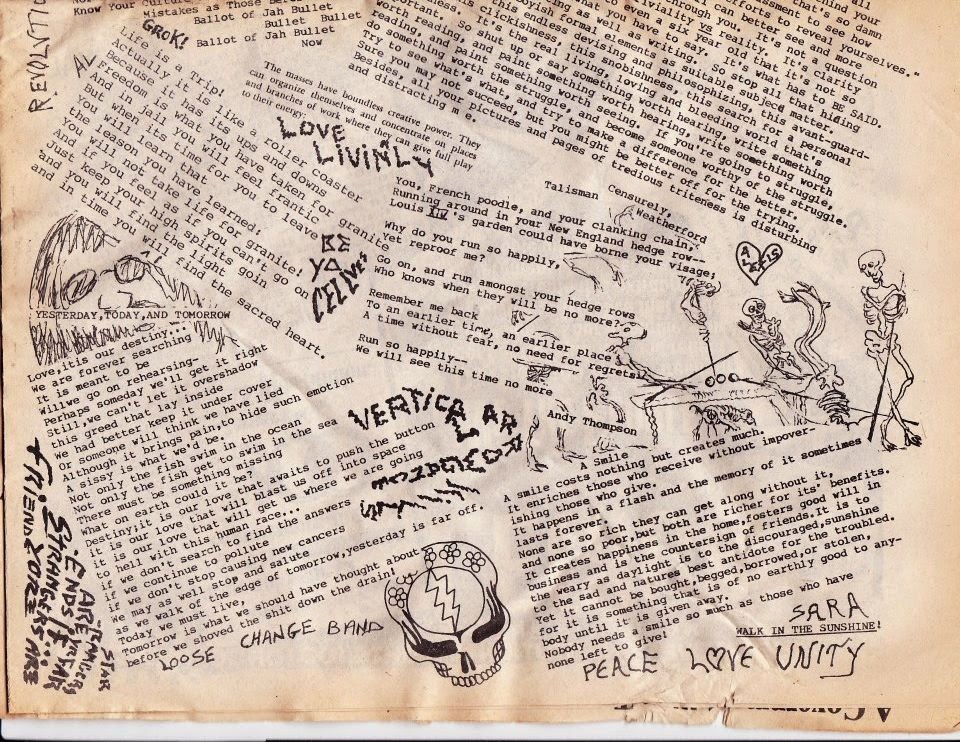 REVOLUTIO
Know Your Cultu
Mistakes as Those Be
Ballot of Jah Bullet
Bullet Bullet
Ballot of Jah Bullet
Now
GROK!
Life is a Trip!
Actually it is like a roller coaster
Because it has its ups and downs
Freedom is what you have taken for granite
And in jail you will feel frantic
But when its time for you to leave
You will learn that
the leason you have learned,
And not take life for granite!
Just if you feel as if you can't go on
Keep your high spirits goin
and you will find the light
and in time you will find the sacred heart.
The masses have boundless creative power. They
can organize themselves and concentrate on places
and branches of work where they can give full play
to their energy;
LOVE
LIVINLY
BE
YA
CELLVES
behind your
assessment to so damn
efforts to see how
you can better reveal yourselves."
triviality vs reality. It's not a question
to even a six year old that it's clarity
what you have to say. It's what is not so
ing as well as writing. So stop all that hiding
oyish formal elements as suitable subject matter.
this endless devising and philosophising, this avant-guard-
is clickishness, this snobishness, this search for a personal
ness. It's the real living, loving and bleeding world that's
portant. So shut up or say something worth hearing, write something
worth reading, and paint something worth seeing. If you're going to struggle,
reading, and paint something worth
do something worth the struggle, and become someone worthy of the struggle.
Try to see what's what, and try to make a difference for the better.
Sure you may not succeed, but you might be better off for the trying.
Besides, all your pictures and pages of tredious triteness is disturbing
and distracting me.
Talisman
Censurely,
Weatherford
You, French poodle, and your clanking chain,
Running around in your New England hedge row--
Louis XIV's garden could have borne your visage;
Why do you run so happily,
Yet reproof me?
Go on, and run amongst your hedge rows
Who knows when they will be no more?
Remember me back
To an earlier time, an earlier place
A time without fear, no need for regrets
Run so happily--
We will see this time no more
Andy Thompson
YESTERDAY,TODAY,AND TOMORROW
Love,it is our destiny...
We are forever searching
It is meant to be
Willwe go on rehearsing-
Perhaps someday we'll get it right
Still,we can't let it overshadow
this greed that lay inside
We had better keep it under cover
Or someone will think we have lied
Although it brings pain,to hide such emotion
A sissy is what we'd be.
Not only the fish swim in the ocean
Not only the fish get to swim in the sea
There must be something missing
What on earth could it be?
Destiny,it is our love that awaits to push the button
it is our love that will blast us off into space
is our love that will get us where we are going
to hell with this human race...
if we don't search to find the answers
if we continue to pollute
if we don't stop causing new cancers
We may as well stop and salute
as we walk of the edge of tomorrow,yesterday is far off.
Today,we must live,
Tomorrow is what we should have thought about
before we shoved the shit down the drain!
VERTICLAR
A Smile
A smile costs nothing but creates much.
It enriches those who receive without impover-
ishing those who give.
It happens in a flash and the memory of it sometimes
lasts forever.
None are so rich they can get along without it,
and none so poor,but both are richer for its' benefits.
It creates happiness in the home,fosters good will in
business and is the countersign of friends.It is to
the weary as daylight to the discouraged,sunshine
to the sad and natures best antidote for the troubled.
Yet it cannot be bought,begged,borrowed,or stolen,
for it is something that is of no earthly good to any-
body until it is given away.
Nobody needs a smile so much as those who have
none left to give!
SARA
WALK IN THE SUNSHINE!
PEACE LOVE UNITY
LOOSE CHANGE BAND
STRANGERS ARE